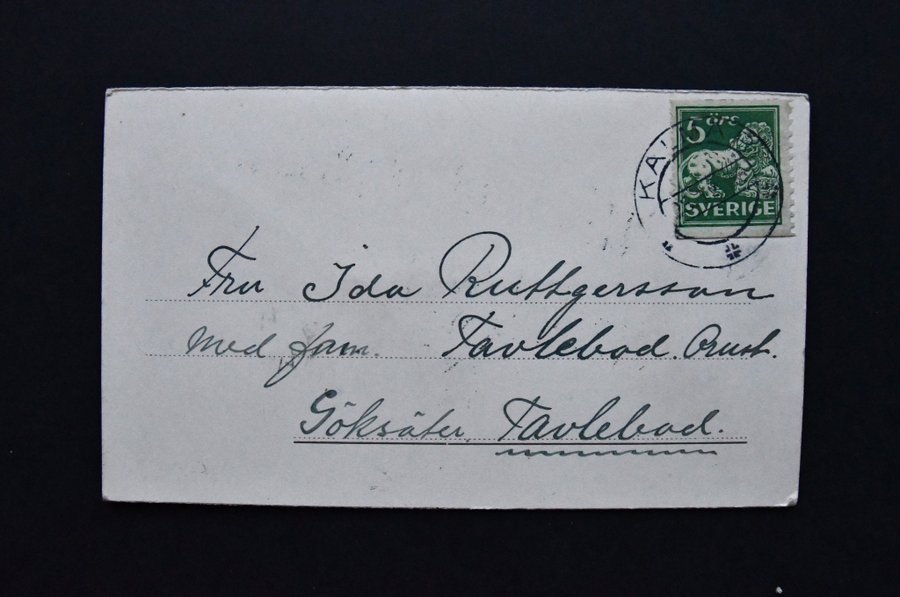 5 öre
SVERIGE
Fru Ida Ruthgersson
Med fam. Tavlebod. Orust.
Göksäter, Tavlebod.